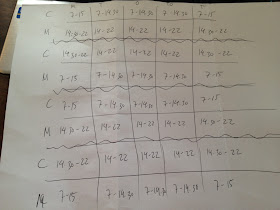 C 7-15 7-14.30 7-14.30 7-14.30 7-15
M 14.30-22 14-22 14-22 14-22 14.30-22
C 14.30-22 14-22 14-22 14-22 14.30-22
M 7-15 7-14.30 7-14.30 7-14.30 7-15
C 7-15 7-14.30 7-14.30 7-14.30 7-15
M 14.30-22 14-22 14-22 14-22 14.30-22
C 14.30-22 14-22 14-22 14-22 14.30-22
M 7-15 7-14.30 7-14.30 7-14.30 7-15